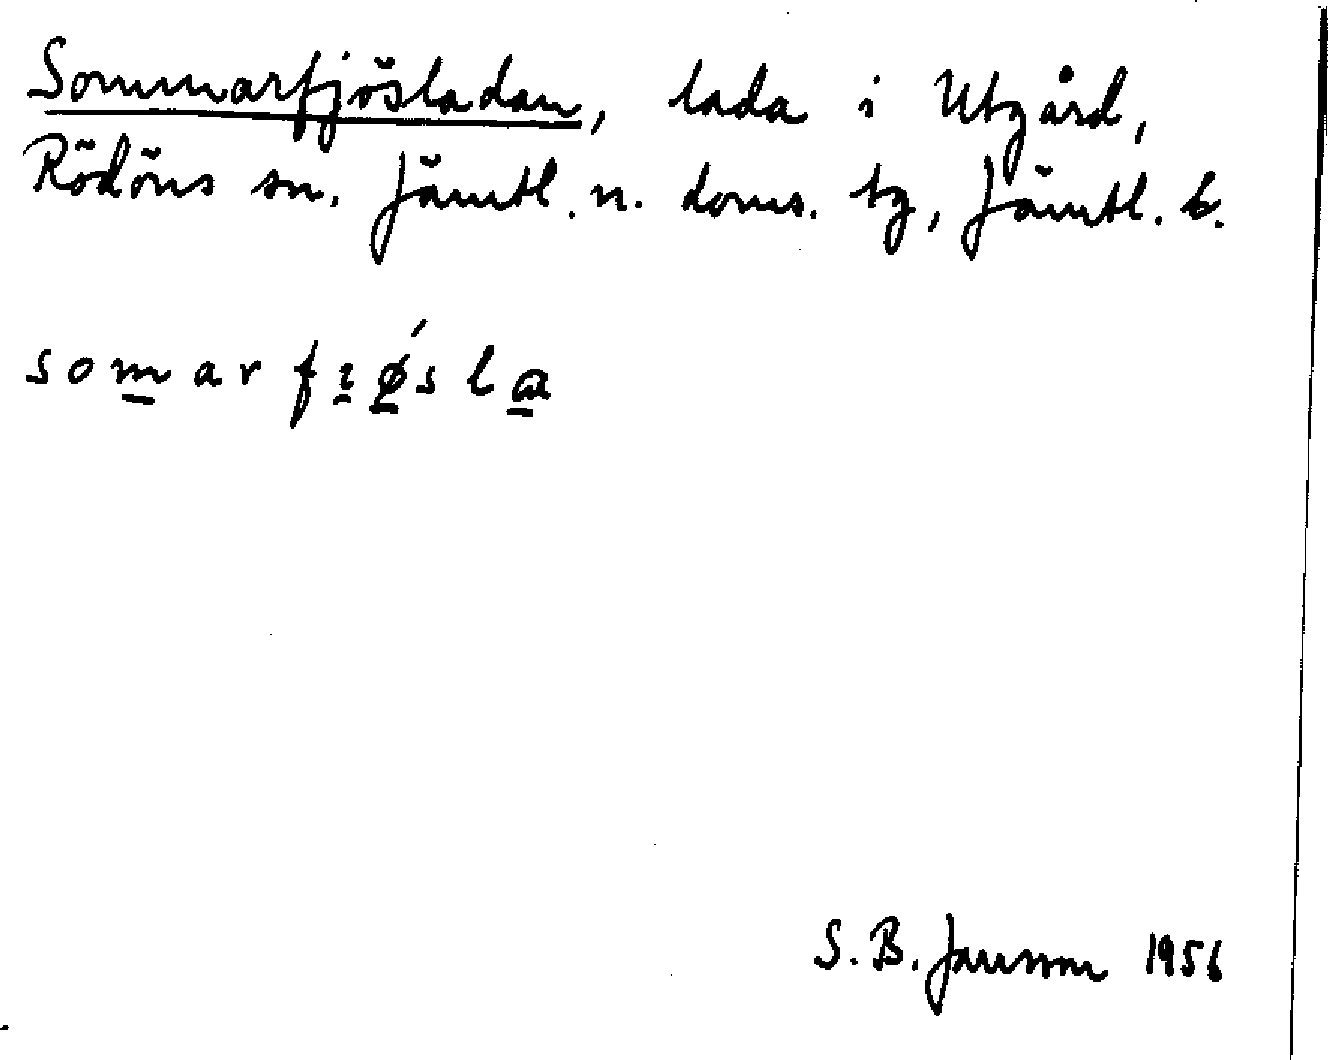 Sommarfjösladan, lada i Utgård,
Rödöns sn. Jämtl. n. doms. tg, Jämtl. l.
somarfıǿsla
S. B. Jansson 1956